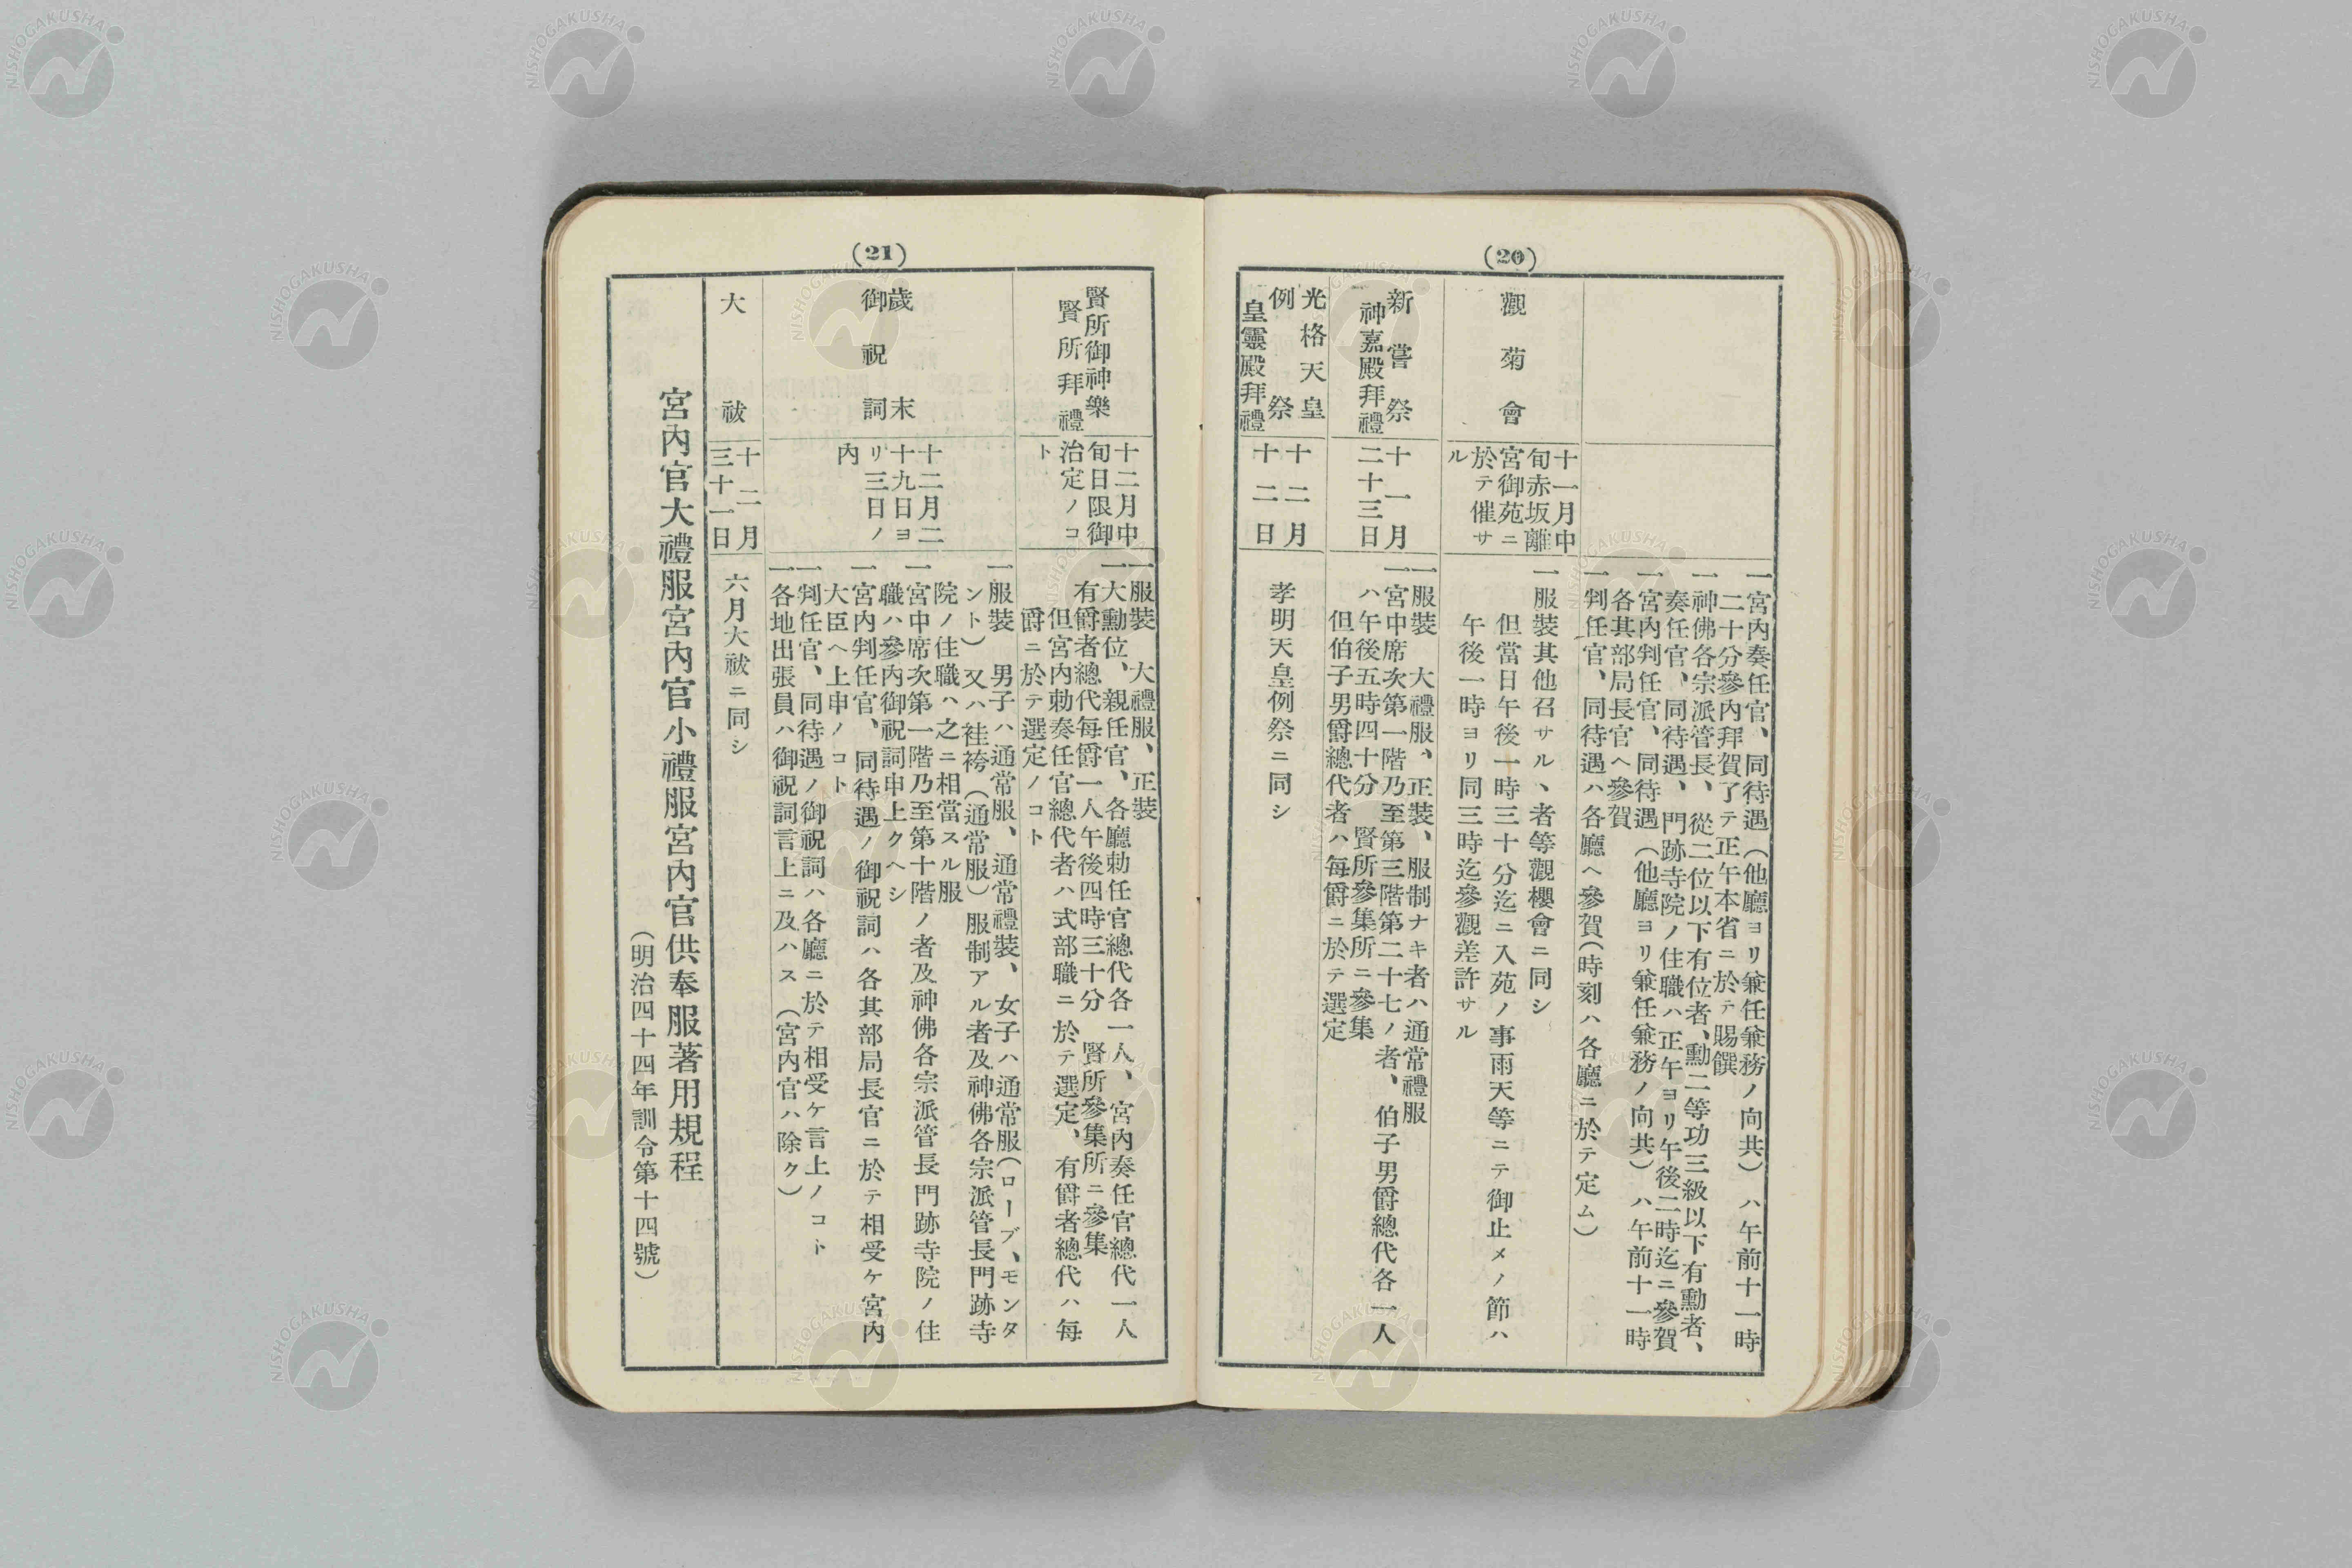 (20)
一宮內奏任官、同待遇(他廳ヨリ兼任兼務ノ向共)ハ午前十一時
二十分參內拜賀了テ正午本省ニ於テ賜饌
一神佛各宗派管長、從二位以下有位者、勳二等功三級以下有勳者、
奏任官、同待遇、門跡寺院ノ住職ハ正午ヨリ午後二時迄ニ參賀
一宮內判任官、同待遇(他廳ヨリ兼任兼務ノ向共)ハ午前十一時
各其部局長官ヘ參賀
一判任官、同待遇ハ各廳ヘ參賀(時刻ハ各廳ニ於テ定ム)
觀菊會
十一月中
旬赤坂離
宮御苑ニ
於テ催サ
ル
一服裝其他召サル丶者等觀櫻會ニ同シ
但當日午後一時三十分迄ニ入苑ノ事雨天等ニテ御止メノ節ハ
午後一時ヨリ同三時迄參觀差許サル
新嘗祭
神嘉殿拜禮
十一月
二十三日
一服裝 大禮服、正裝、服制ナキ者ハ通常禮服
一宮中席次第一階乃至第三階第二十七ノ者、伯子男爵總代各一人
ハ午後五時四十分 賢所參集所ニ參集
但伯子男爵總代者ハ每爵ニ於テ選定
光格天皇
例祭
皇靈殿拜禮
十二月
十二日
孝明天皇例祭ニ同シ
(21)
賢所御神樂
賢所拜禮
十二月中
旬日限御
治定ノコ
ト
一服裝 大禮服、正裝
一大勳位、親任官、各廳勅任官總代各一人、宮內奏任官總代一人
有爵者總代每爵一人午後四時三十分 賢所參集所ニ參集
但宮內勅奏任官總代者ハ式部職ニ於テ選定、有爵者總代ハ每
爵ニ於テ選定ノコト
歲末
御祝詞
十二月二
十九日ヨ
リ三日ノ
內
一服裝 男子ハ通常服、通常禮裝、女子ハ通常服(ローブ、モンタ
ント)又ハ袿袴(通常服)服制アル者及神佛各宗派管長門跡寺
院ノ住職ハ之ニ相當スル服
一宮中席次第一階乃至第十階ノ者及神佛各宗派管長門跡寺院ノ住
職ハ參內御祝詞申上クヘシ
一宮內判任官、同待遇ノ御祝詞ハ各其部局長官ニ於テ相受ケ宮內
大臣ヘ上申ノコト
一判任官、同待遇ノ御祝詞ハ各廳ニ於テ相受ケ言上ノコト
一各地出張員ハ御祝詞言上ニ及ハス(宮內官ハ除ク)
大祓
十二月
三十一日
六月大祓ニ同シ
宮內官大禮服宮內官小禮服宮內官供奉服著用規程
(明治四十四年訓令第十四號)